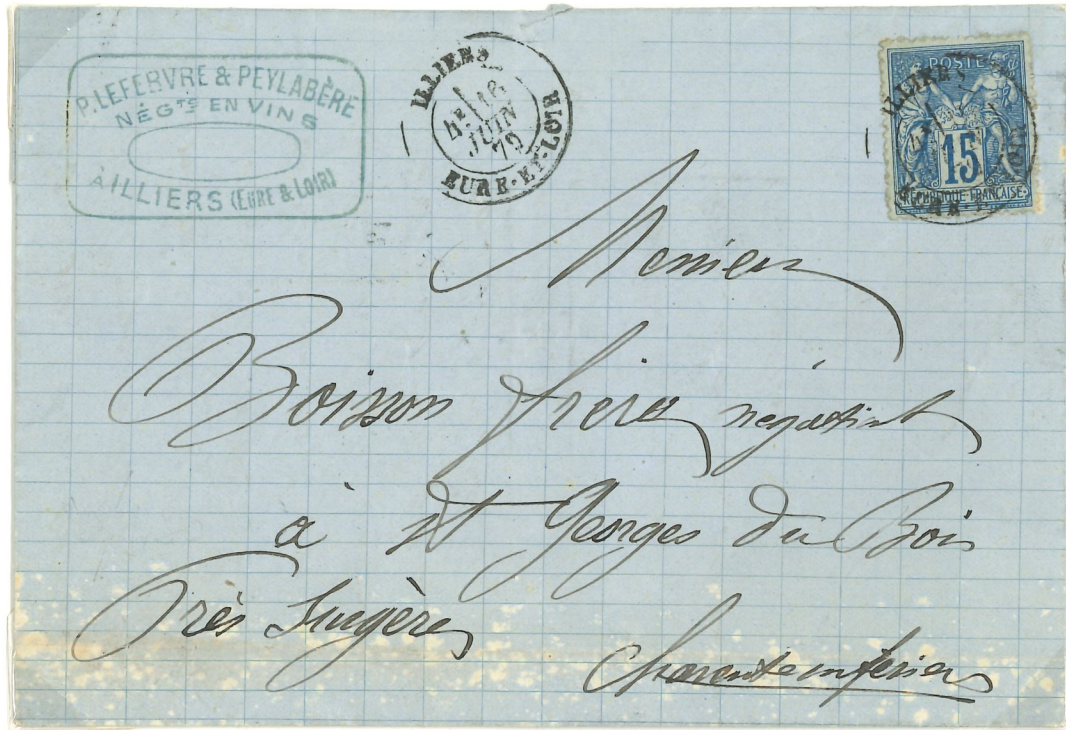 P. LEFEBVRE & PEYLABÈRE
NÉGTS EN VINS
À ILLIERS (EURE & LOIR)
ILLIERS
4E 18
JUIN
79
EURE-ET-LOIR
POSTE
ILLIERS
15
REPUBLIQUE FRANÇAISE
Monsieur
Boisson frères négotiant
à St Georges du Bois
Près Surgères
Charente inférieure